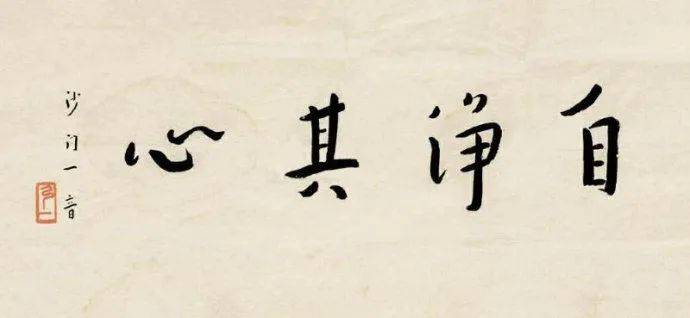 自净其心
沙门一音